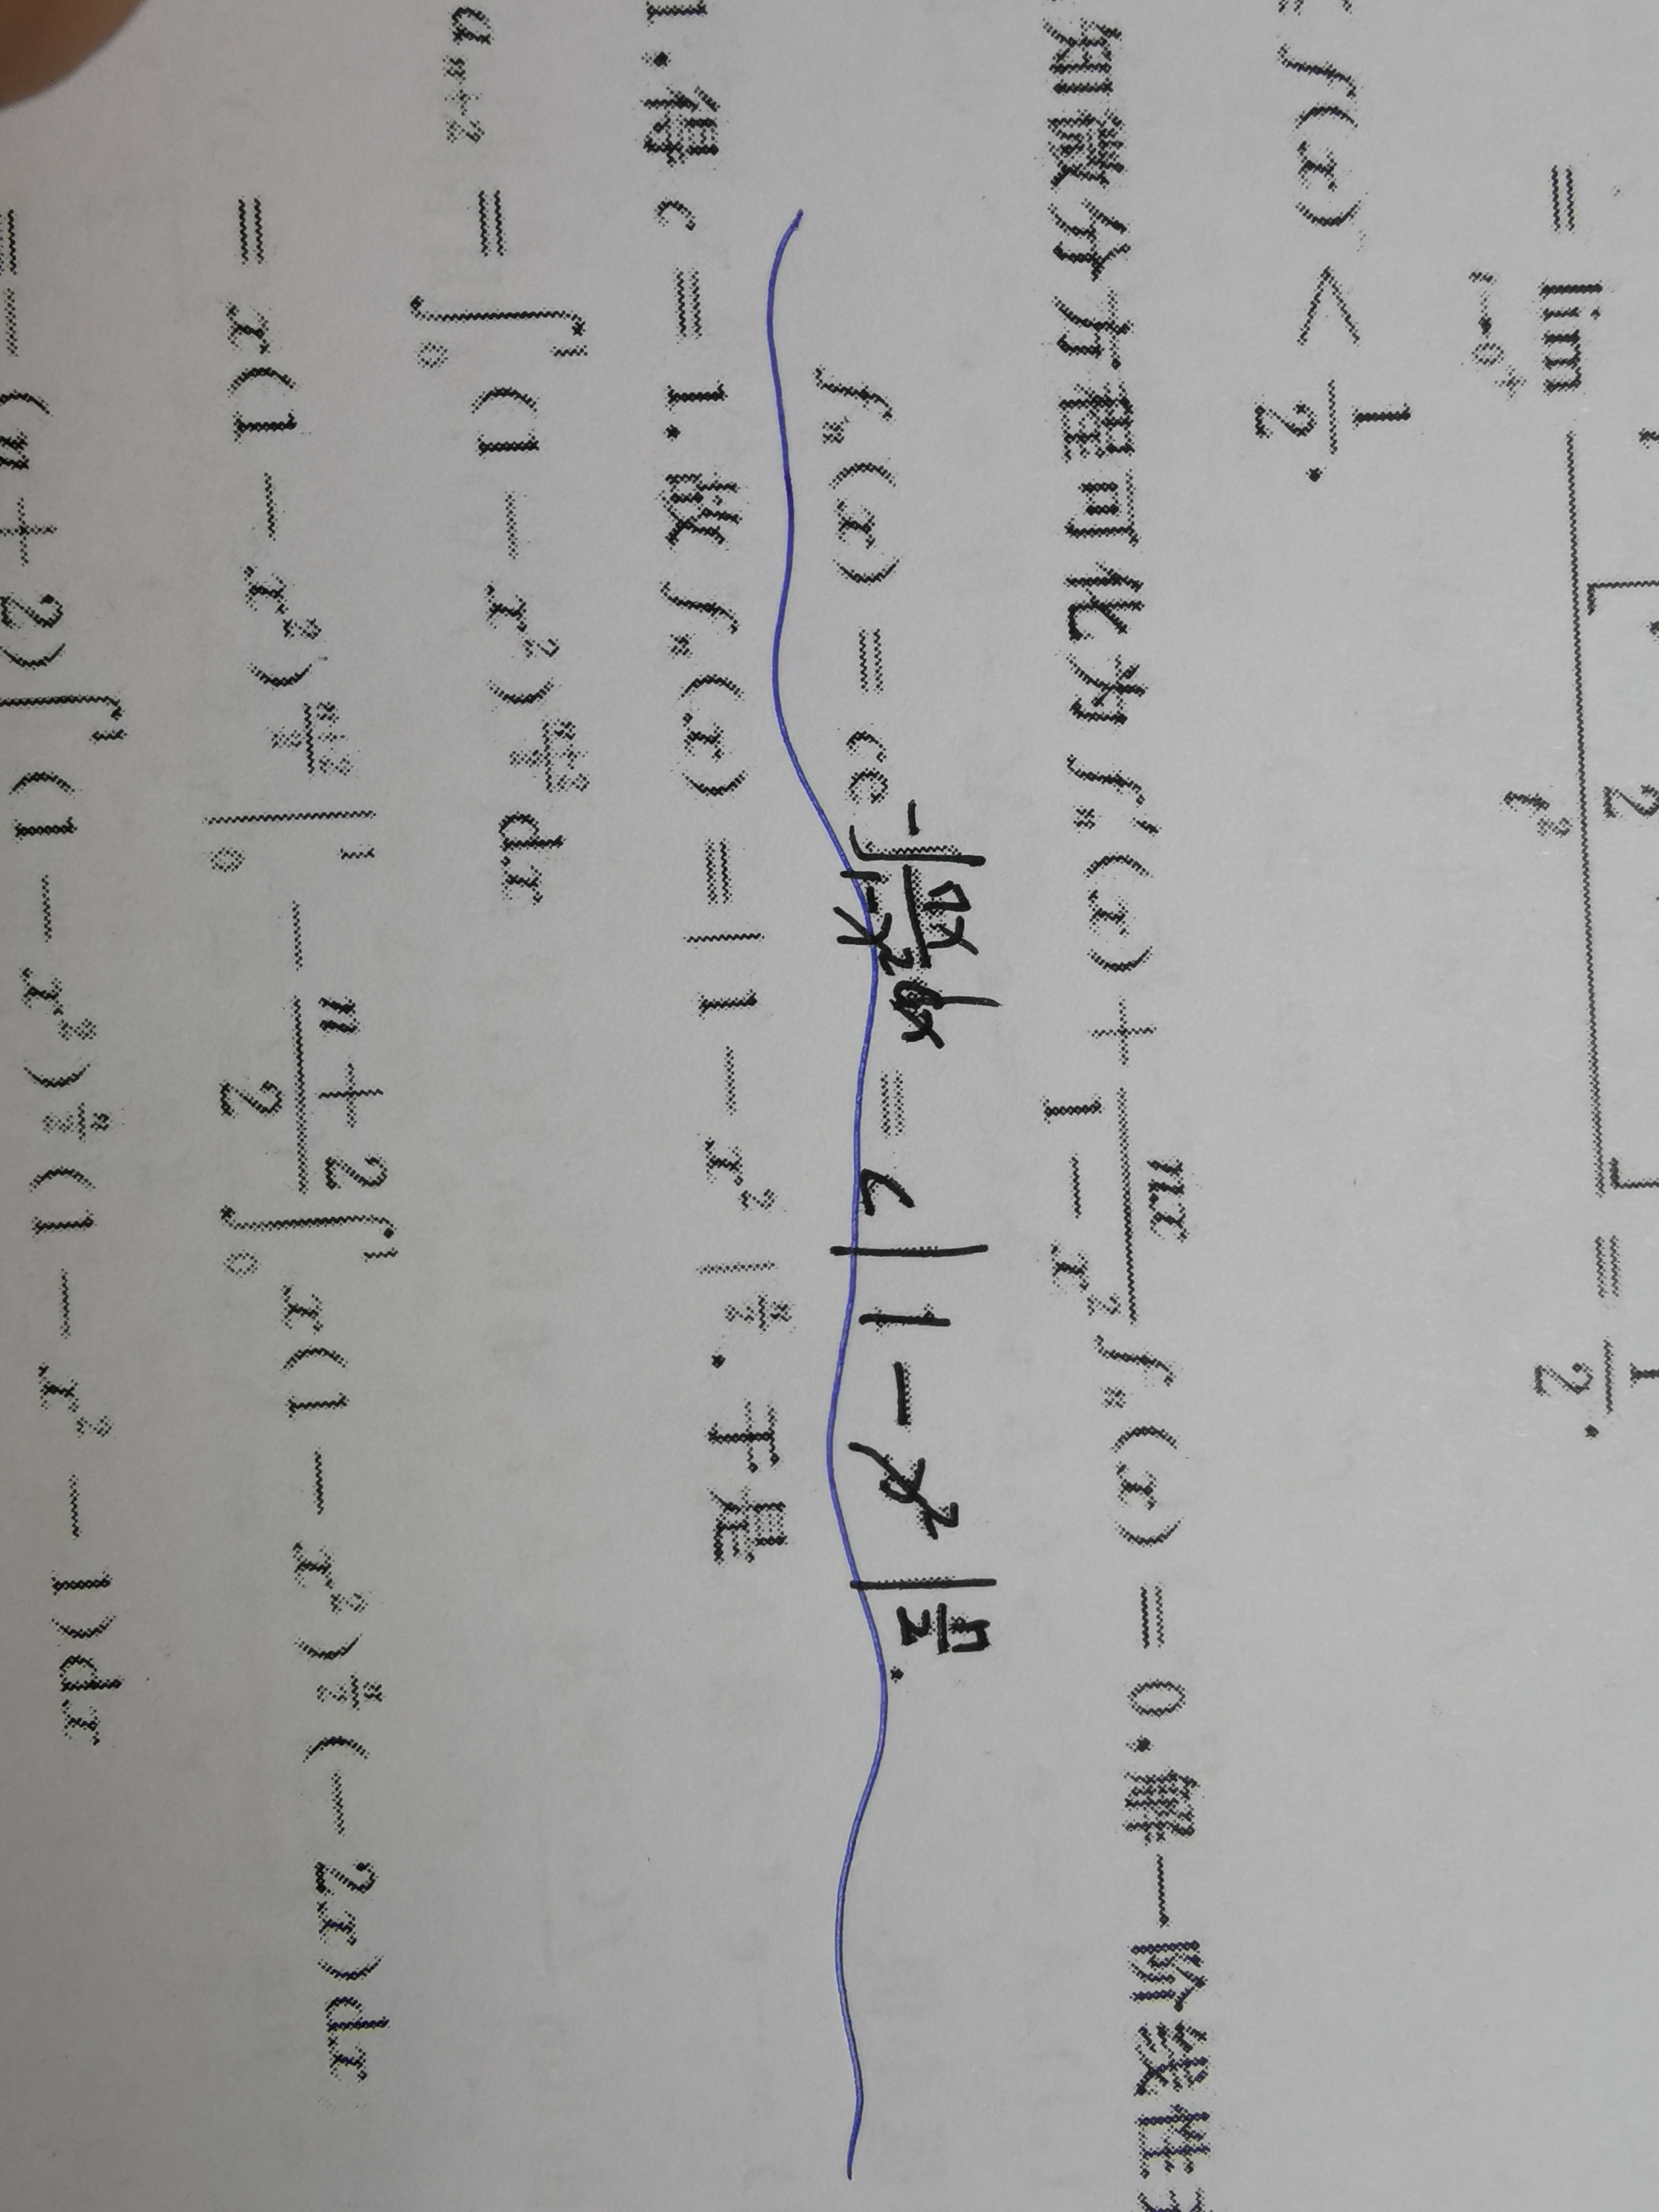 = lim_{t→0⁺} [ 2 ] / t² = 1/2.
f(x) < 1/2.
知微分方程可化为 fₙ′(x) + nx/(1 − x²) fₙ(x) = 0. 解一阶线性
fₙ(x) = ce^{-∫ nx/(1-x²) dx} = c|1 − x²|^{n/2}.
1. 得 c = 1. 故 fₙ(x) = |1 − x²|^{n/2}. 于是
aₙ₊₂ = ∫₀¹ (1 − x²)^{(n+2)/2} dx
= x(1 − x²)^{(n+2)/2} |₀¹ − (n + 2)/2 ∫₀¹ x(1 − x²)^{n/2} (− 2x)dx
= − (n + 2)∫¹ (1 − x²)^{n/2} (1 − x² − 1)dx